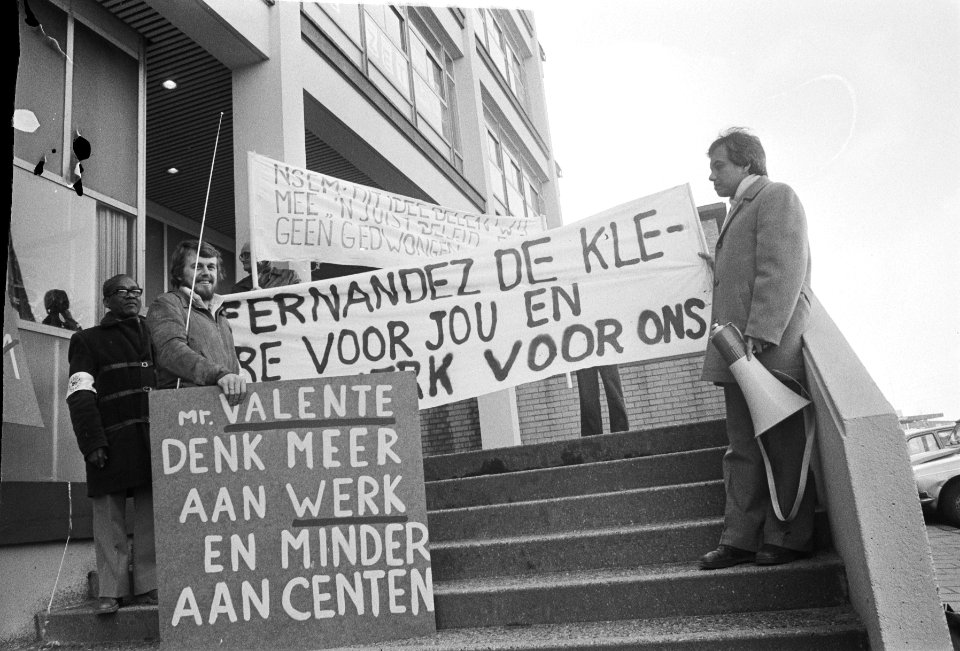 NSEM: DIT IDEE DELEN WY
MEE 'N JUIST BELEID
GEEN GEDWONGEN
FERNANDEZ DE KLE-
RE VOOR JOU EN
VOOR ONS
MR. VALENTE
DENK MEER
AAN WERK
EN MINDER
AAN CENTEN